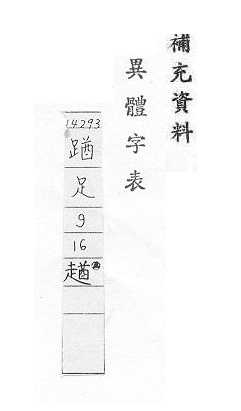 補充資料
異體字表
14293
足
9
16
趥